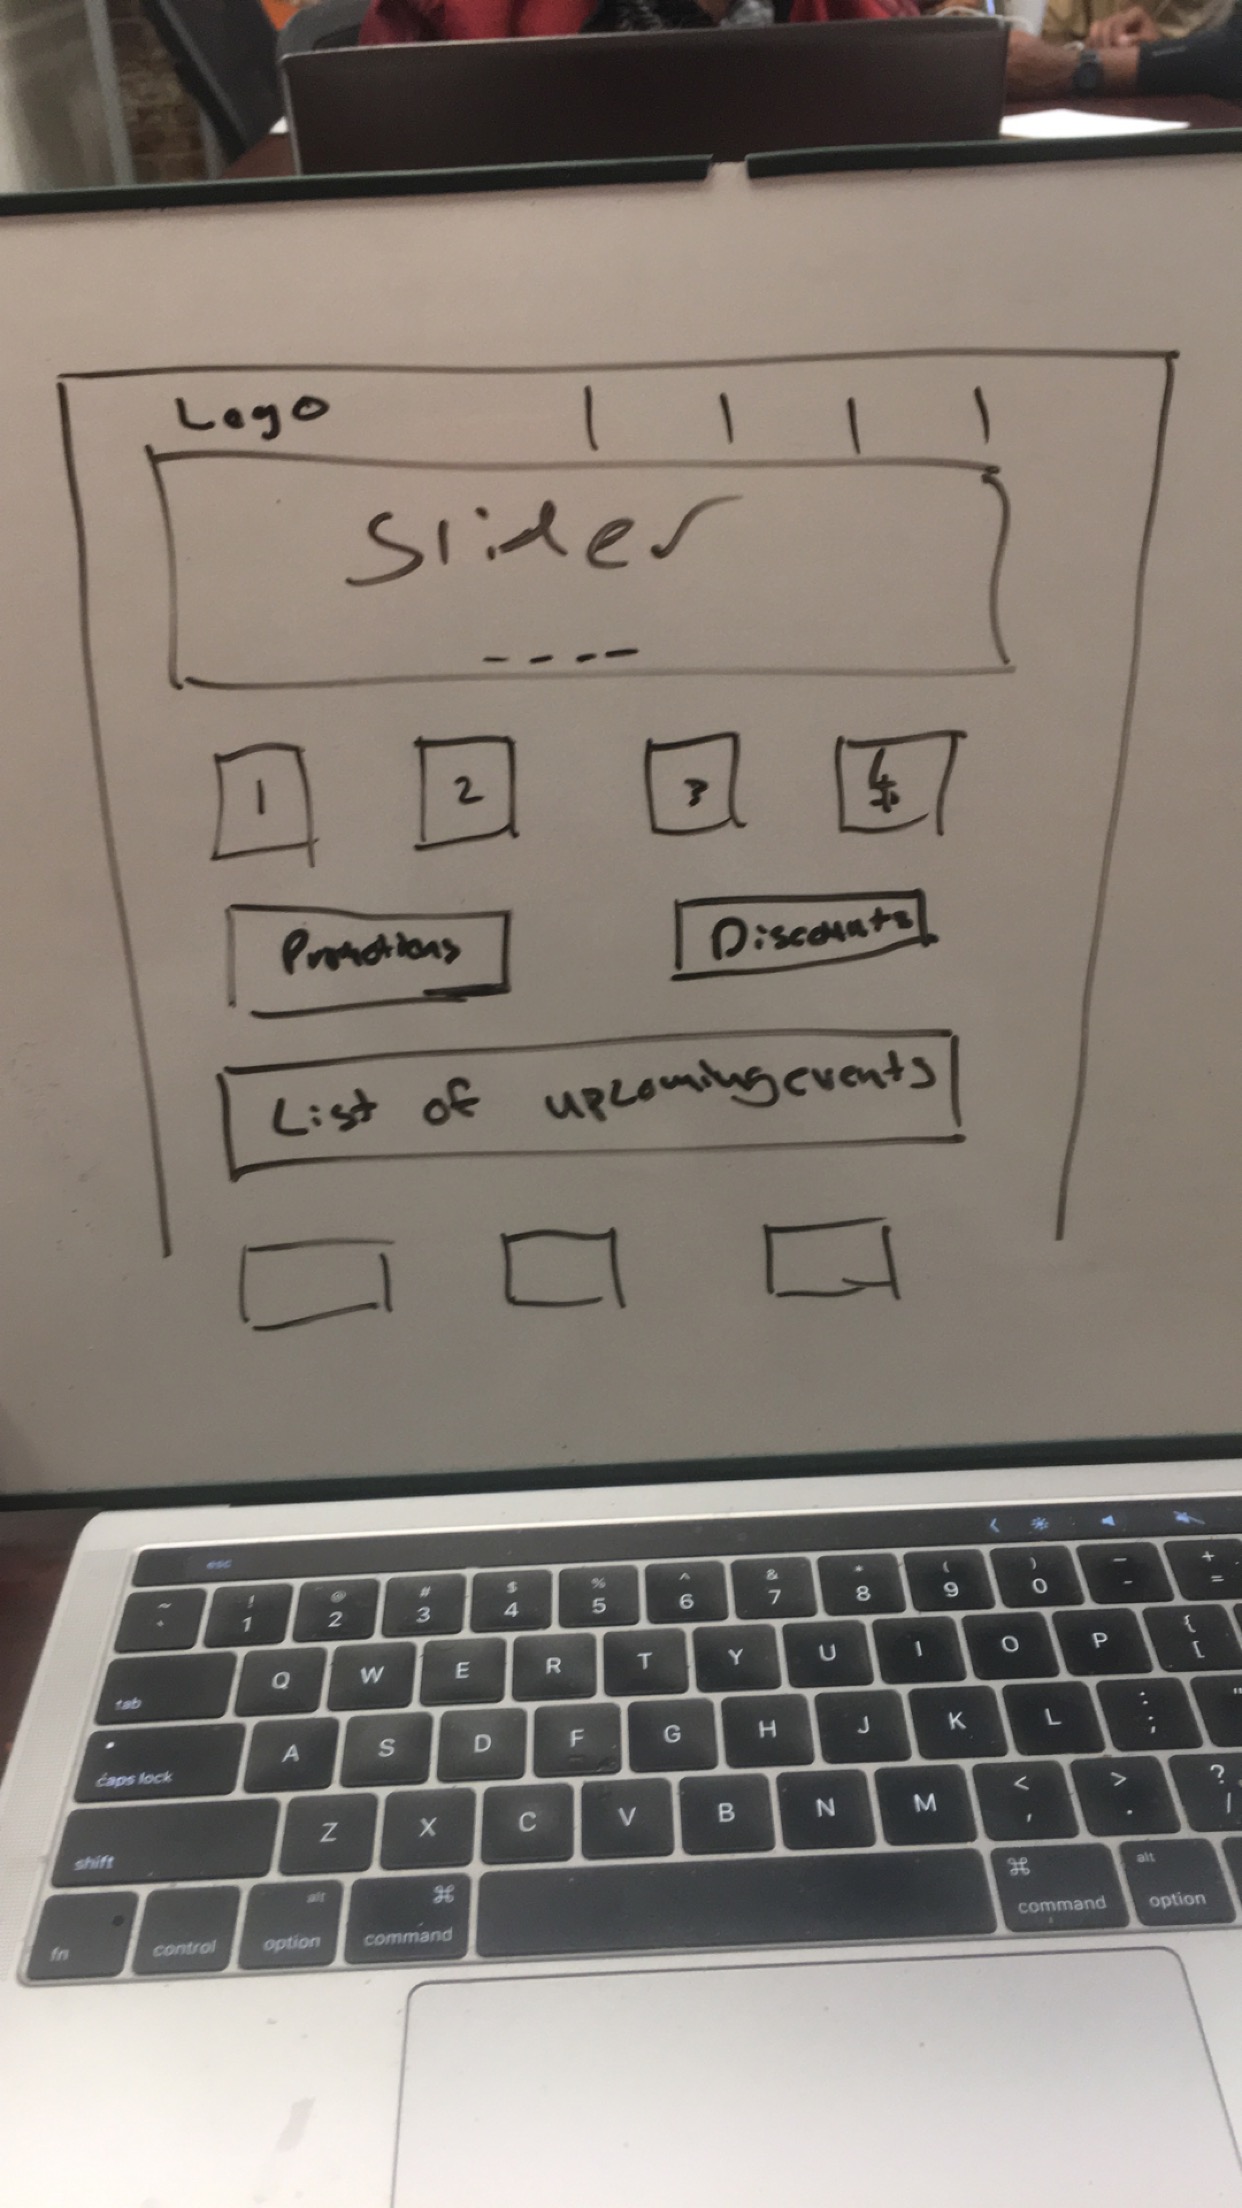 Logo
Slider
1 2 3 4
Promotions Discounts
List of upcoming events
esc
~ ! @ # $ % ^ & * ( ) _ +
` 1 2 3 4 5 6 7 8 9 0 - =
tab Q W E R T Y U I O P { [
caps lock A S D F G H J K L : ; "
shift Z X C V B N M < , > . ? /
fn control alt option ⌘ command ⌘ command alt option